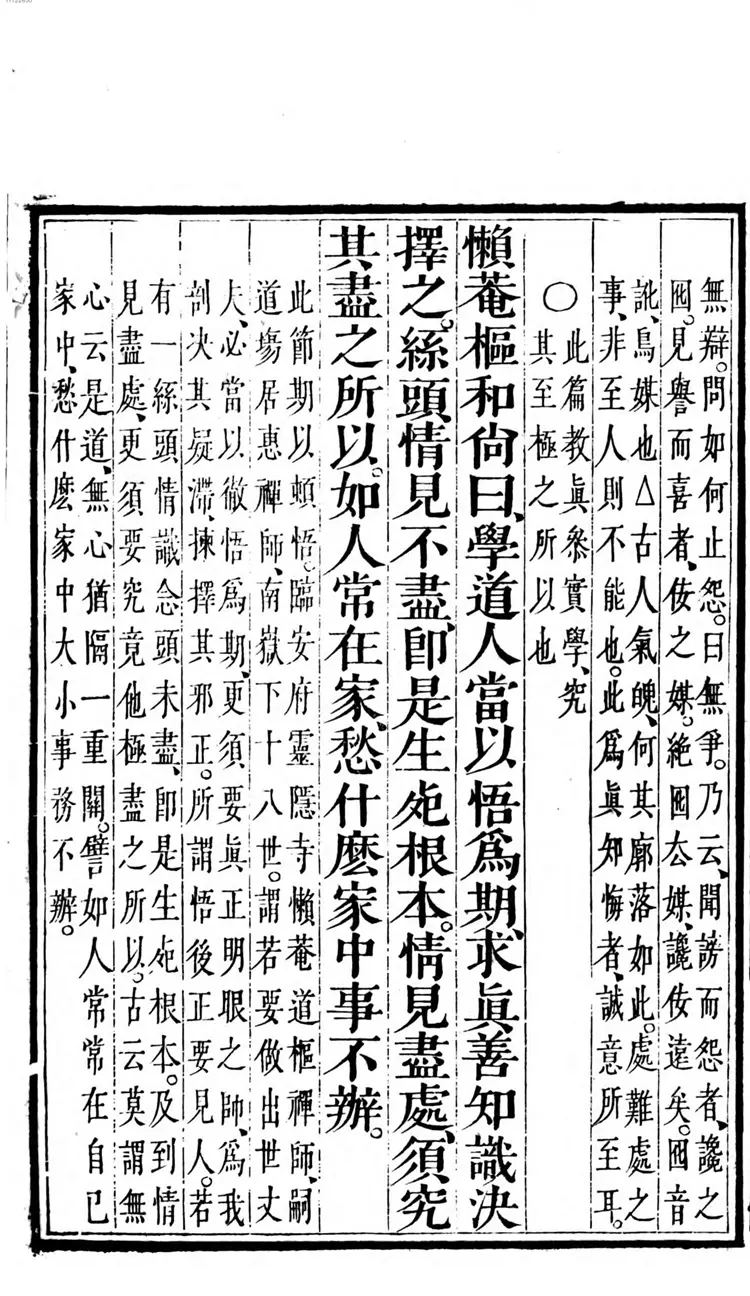 無辯。問如何止怨。曰無爭。乃云、聞謗而怨者、讒之
囮。見譽而喜者、佞之媒。絕囮去媒、讒佞遠矣。囮音
訛、鳥媒也△古人氣魄、何其廓落如此。處難處之
事、非至人則不能也。此爲眞知悔者、誠意所至耳。
○此篇教眞叅實學、究
其至極之所以也
懶菴樞和尙曰、學道人當以悟爲期、求眞善知識決
擇之。絲頭情見不盡、卽是生死根本。情見盡處、須究
其盡之所以。如人常在家、愁什麽家中事不辦。
此節期以頓悟。臨安府靈隱寺懶菴道樞禪師、嗣
道塲居惠禪師、南嶽下十八世。謂若要做出世丈
夫、必當以徹悟爲期、更須要眞正明眼之師、爲我
剖决其疑滯、揀擇其邪正。所謂悟後正要見人。若
有一絲頭情識念頭未盡、卽是生死根本。及到情
見盡處、更須要究竟他極盡之所以。古云莫謂無
心云是道、無心猶隔一重關。譬如人常常在自已
家中、愁什麽家中大小事務不辦。